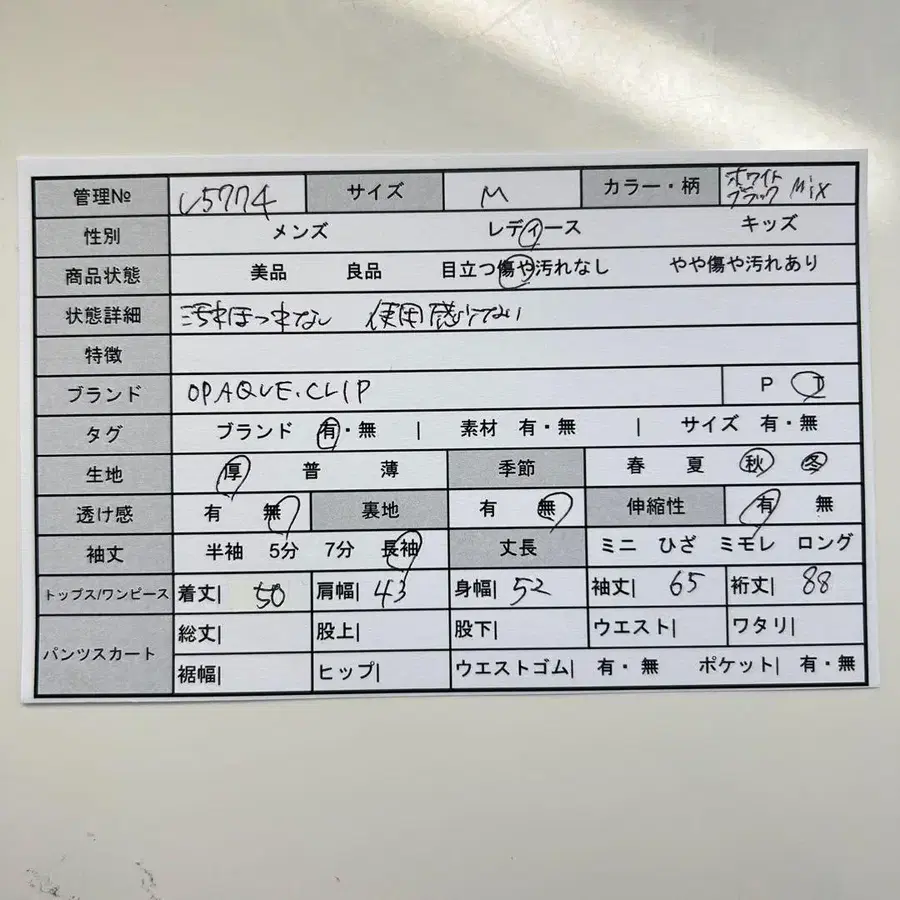 管理№ L5774 サイズ M カラー・柄 ホワイト ブラック Mix
性別 メンズ レディース キッズ
商品状態 美品 良品 目立つ傷や汚れなし やや傷や汚れあり
状態詳細 汚れほつれなし 使用感少ない
特徴
ブランド OPAQUE.CLIP P I
タグ ブランド 有・無 | 素材 有・無 | サイズ 有・無
生地 厚 普 薄 季節 春 夏 秋 冬
透け感 有 無 裏地 有 無 伸縮性 有 無
袖丈 半袖 5分 7分 長袖 丈長 ミニ ひざ ミモレ ロング
トップス/ワンピース 着丈| 50 肩幅| 43 身幅| 52 袖丈| 65 裄丈| 88
パンツスカート 総丈| 股上| 股下| ウエスト| ワタリ|
裾幅| ヒップ| ウエストゴム| 有・無 ポケット| 有・無